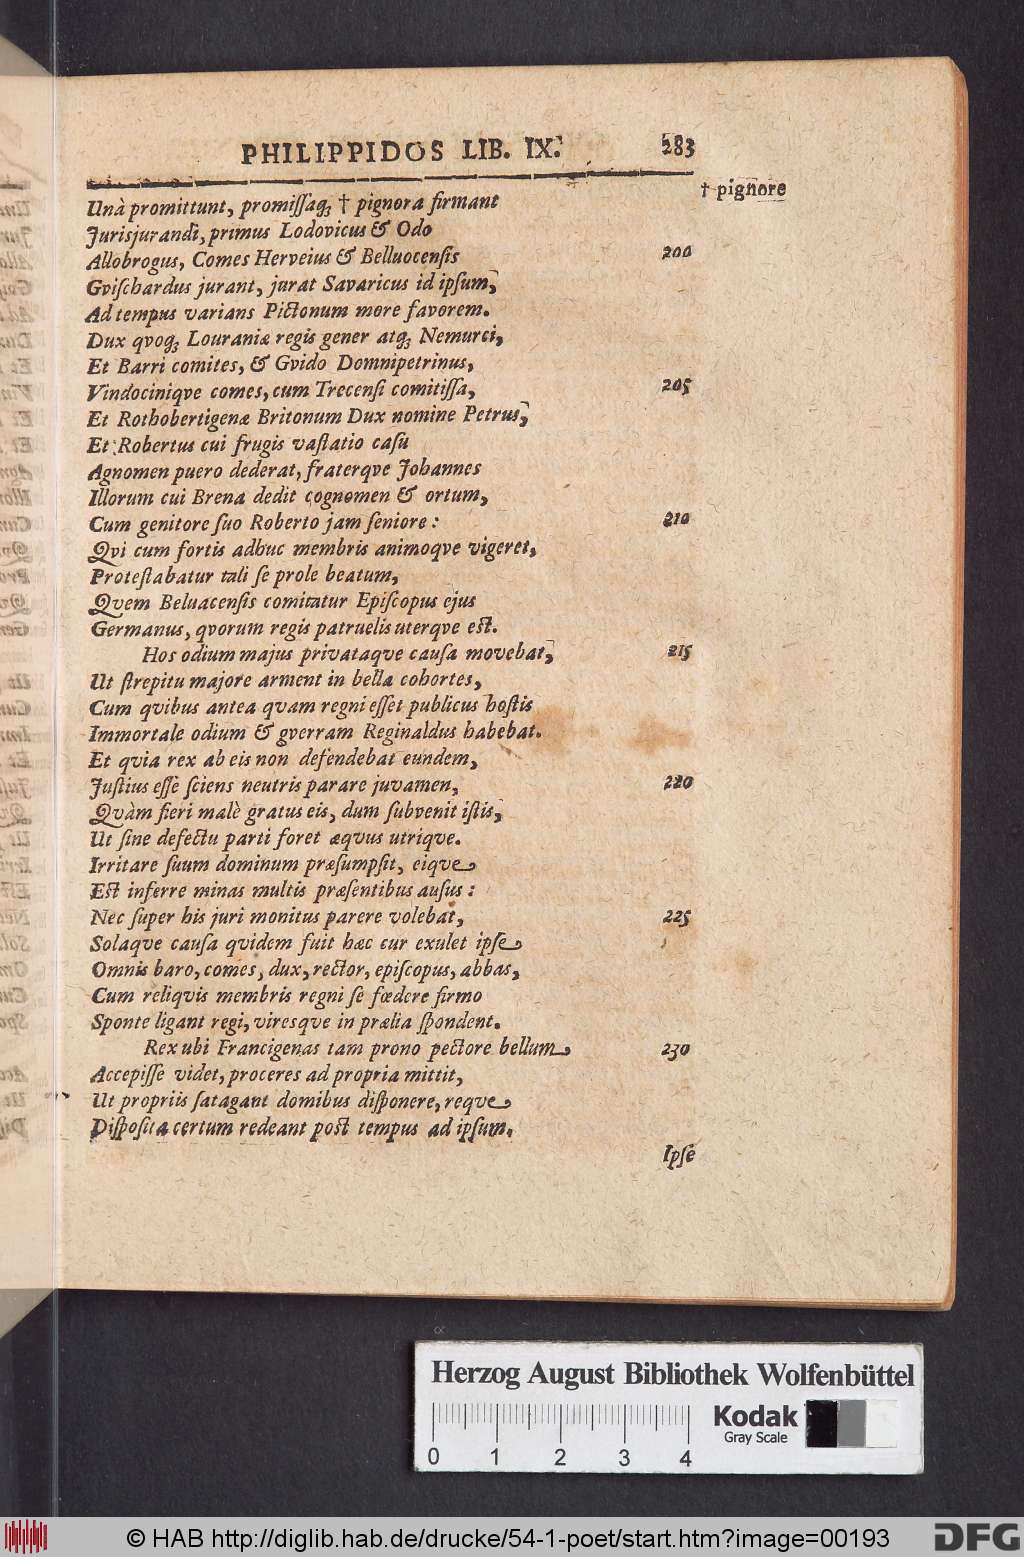 PHILIPPIDOS LIB. IX. 283
Unà promittunt, promiſſaqꝫ † pignora firmant † pignore
Jurisjurandi, primus Lodovicus & Odo
Allobrogus, Comes Herveius & Belluocenſis 200
Gviſchardus jurant, jurat Savaricus id ipſum,
Ad tempus varians Pictonum more favorem.
Dux qvoqꝫ Louraniæ regis gener atqꝫ Nemurci,
Et Barri comites, & Gvido Domnipetrinus,
Vindociniqve comes, cum Trecenſi comitiſſa, 205
Et Rothobertigenæ Britonum Dux nomine Petrus,
Et Robertus cui frugis vaſtatio caſu
Agnomen puero dederat, fraterqve Johannes
Illorum cui Brena dedit cognomen & ortum,
Cum genitore ſuo Roberto jam ſeniore: 210
Qvi cum fortis adhuc membris animoqve vigeret,
Proteſtabatur tali ſe prole beatum,
Qvem Beluacenſis comitatur Epiſcopus ejus
Germanus, qvorum regis patruelis uterqve eſt.
Hos odium majus privataque cauſa movebat, 215
Ut ſtrepitu majore arment in bella cohortes,
Cum qvibus antea qvam regni eſſet publicus hoſtis
Immortale odium & gverram Reginaldus habebat.
Et qvia rex ab eis non defendebat eundem,
Juſtius eſſe ſciens neutris parare juvamen, 220
Qvàm fieri malè gratus eis, dum ſubvenit iſtis,
Ut ſine defectu parti foret æqvus utriqve.
Irritare ſuum dominum præſumpſit, eiqve
Eſt inferre minas multis præſentibus auſus:
Nec ſuper his juri monitus parere volebat, 225
Solaqve cauſa qvidem fuit hæc cur exulet ipſe
Omnis baro, comes, dux, rector, epiſcopus, abbas,
Cum reliqvis membris regni ſe fœdere firmo
Sponte ligant regi, viresqve in prælia ſpondent.
Rex ubi Francigenas tam prono pectore bellum 230
Accepiſſe videt, proceres ad propria mittit,
Ut propriis ſatagant domibus diſponere, reqve
Diſpoſita certum redeant poſt tempus ad ipſum.
Ipſe
Herzog August Bibliothek Wolfenbüttel
Kodak
Gray Scale
0 1 2 3 4
© HAB http://diglib.hab.de/drucke/54-1-poet/start.htm?image=00193
DFG